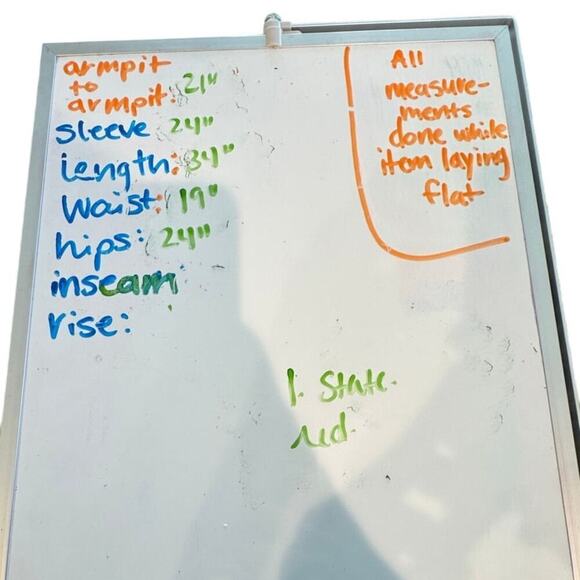 armpit
to
armpit: 21"
Sleeve 24"
Length: 34"
Waist: 19"
hips: 24"
inseam
rise:
All
measure-
ments
done while
item laying
flat
1. State.
red.